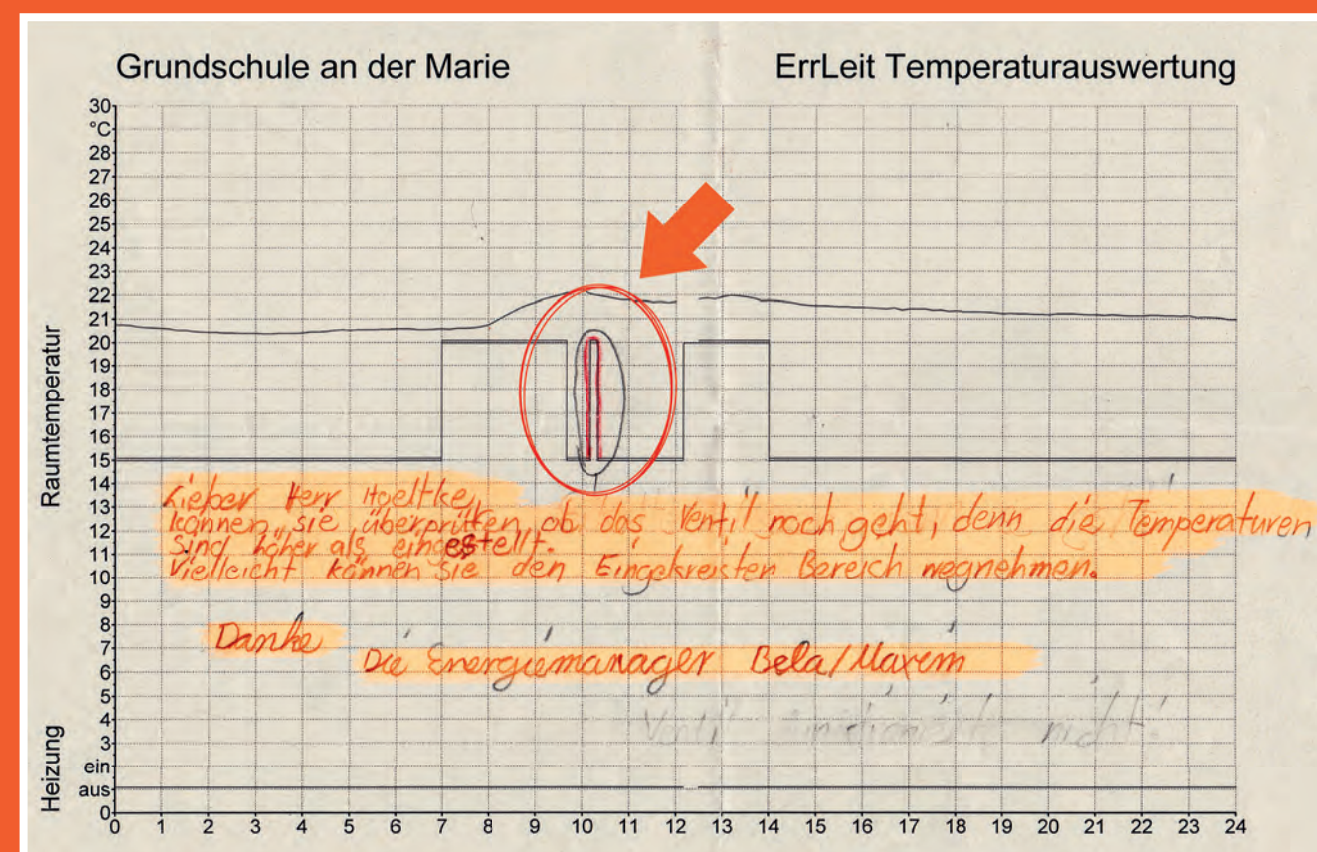 Grundschule an der Marie
ErrLeit Temperaturauswertung
30
°C
28
27
26
25
24
23
22
21
20
19
18
17
16
15
14
13
12
11
10
9
8
7
6
5
4
3
ein
aus
0
Raumtemperatur
Heizung
Lieber Herr Hoeltke,
können sie überprüfen, ob das Ventil noch geht, denn die Temperaturen
sind höher als eingestellt.
Vielleicht können sie den Eingekreisten Bereich wegnehmen.
Danke
Die Energiemanager Bela/Maxim
Ventil funktionierte nicht!
0 1 2 3 4 5 6 7 8 9 10 11 12 13 14 15 16 17 18 19 20 21 22 23 24